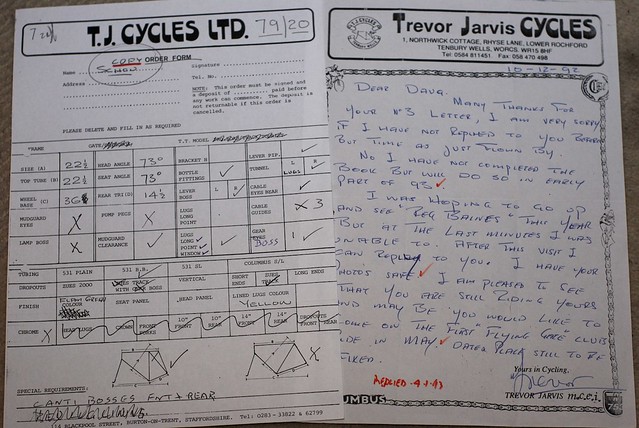 T.J. CYCLES LTD. 79/20
COPY ORDER FORM
SCHON
Name
Address
Signature
Tel. No.
NOTE: This order must be signed and
a deposit of paid before
any work can commence. The deposit is
not returnable if this order is
cancelled.
PLEASE DELETE AND FILL IN AS REQUIRED
*NAME DATE T.T. MODEL
SIZE (A) 22½ HEAD ANGLE 73° BRACKET H LEVER FIT.
TOP TUBE (B) 22½ SEAT ANGLE 73° BOTTLE FITTINGS ✓ TUNNEL L R LUGS
WHEEL BASE (C) REAR TRI(G) 14½ LEVER BOSS L R CABLE EYES REAR
MUDGUARD EYES X PUMP PEGS X LUGS LONG POINT CABLE GUIDES X 3
LAMP BOSS X MUDGUARD CLEARANCE ✓ LUGS LONG POINT WINDOW ✓ GEAR EYES BOSS 1 ✓
TUBING 531 PLAIN 531 D.B. 531 SL COLUMBUS S/L
DROPOUTS ZUES 2000 VERTICAL SHORT ENDS LONG ENDS
FINISH COLOUR SEAT PANEL HEAD PANEL LINED LUGS COLOUR
YELLOW
CHROME X HEAD LUGS CROWN FRONT FORKS 10" FRONT 10" REAR 14" FRONT 14" REAR DROPOUTS FRONT REAR
✓ X
SPECIAL REQUIREMENTS:
CANTI BOSSES FNT + REAR
114 BLACKPOOL STREET, BURTON-ON-TRENT, STAFFORDSHIRE. Tel: 0283 - 33822 & 62799
Trevor Jarvis CYCLES
T.J. CYCLES
1, NORTHWICK COTTAGE, RHYSE LANE, LOWER ROCHFORD
TENBURY WELLS, WORCS. WR15 8HF
Tel: 0584 811451 Fax: 058 470 498
10-12-92
DEAR DOUG.
MANY THANKS FOR
YOUR Nº3 LETTER, I AM VERY SORRY
IF I HAVE NOT REPLIED TO YOU BEFORE
BUT TIME AS JUST FLOWN BY.
NO I HAVE NOT COMPLETED THE
BOOK BUT WILL DO SO IN EARLY
PART OF 93 ✓
I WAS HOPING TO GO UP
AND SEE "REG BAINES" THIS YEAR
BUT AT THE LAST MINUTES I WAS
UNABLE TO. AFTER THIS VISIT I
CAN REPLY TO YOU. I HAVE YOUR
PHOTOS SAFE ✓ I AM PLEASED TO SEE
THAT YOU ARE STILL RIDING YOURS
AND MAY BE YOU WOULD LIKE TO
COME ON THE FIRST "FLYING GATE CLUB
RIDE IN MAY. ✓ DATE & PLACE STILL TO BE
FIXED.
Yours in Cycling,
Trevor
REPLIED - 4-1-93
TREVOR JARVIS m.c.e.i.
UMBUS